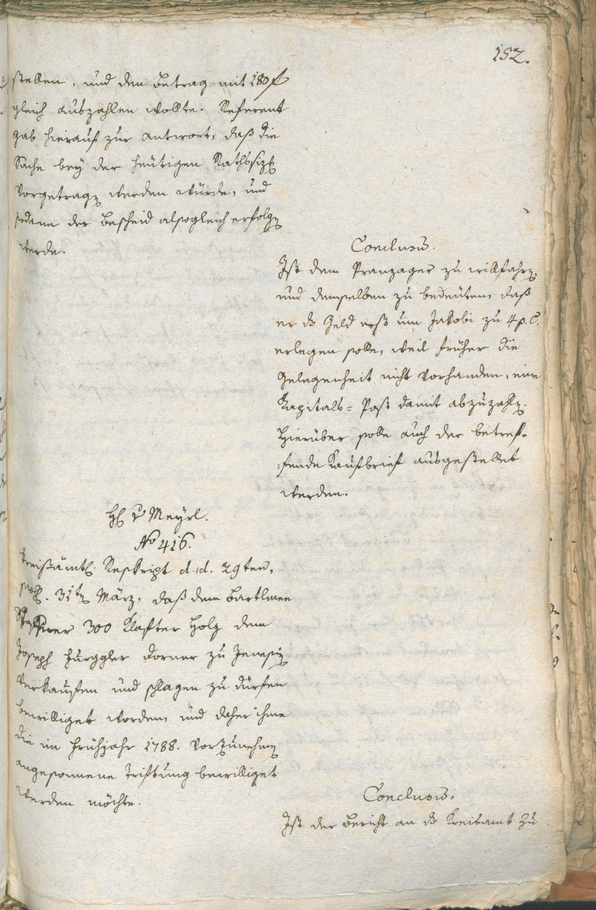 152.
stellen, und den Betrag mit 180 f
gleich auszahlen wollte. Referent
gab hierauf zur Antwort, daß die
Sache bey der heutigen Rathssitz
vorgetragen werden würde, und
sodann der Bescheid alsogleich erfolgen
werde.
Conclusum.
Ist dem Pranzager zu willfahren,
und demselben zu bedeuten, daß
er ds Geld erst um Jakobi zu 4 p. C.
erlegen solle, weil früher die
Gelegenheit nicht vorhanden, eine
Kapitals-Post damit abzuzahlen.
Hierüber solle auch der betref-
fende Kaufbrief ausgestellet
werden.
H v Meyrl.
No 416.
Kreisämtl. Reskript d. d. 29ten,
31ten März, daß dem Bartlmee
300 Klafter Holz dem
Joseph Zurggler Dorner zu Jenesien
verkaufen und schlagen zu dürfen
bewilliget worden, und daher ihme
die im Frühjahr 1788. vorzunehmen
angesonnene Triftung bewilliget
werden möchte.
Conclusum.
Ist der Bericht an ds Kreisamt zu